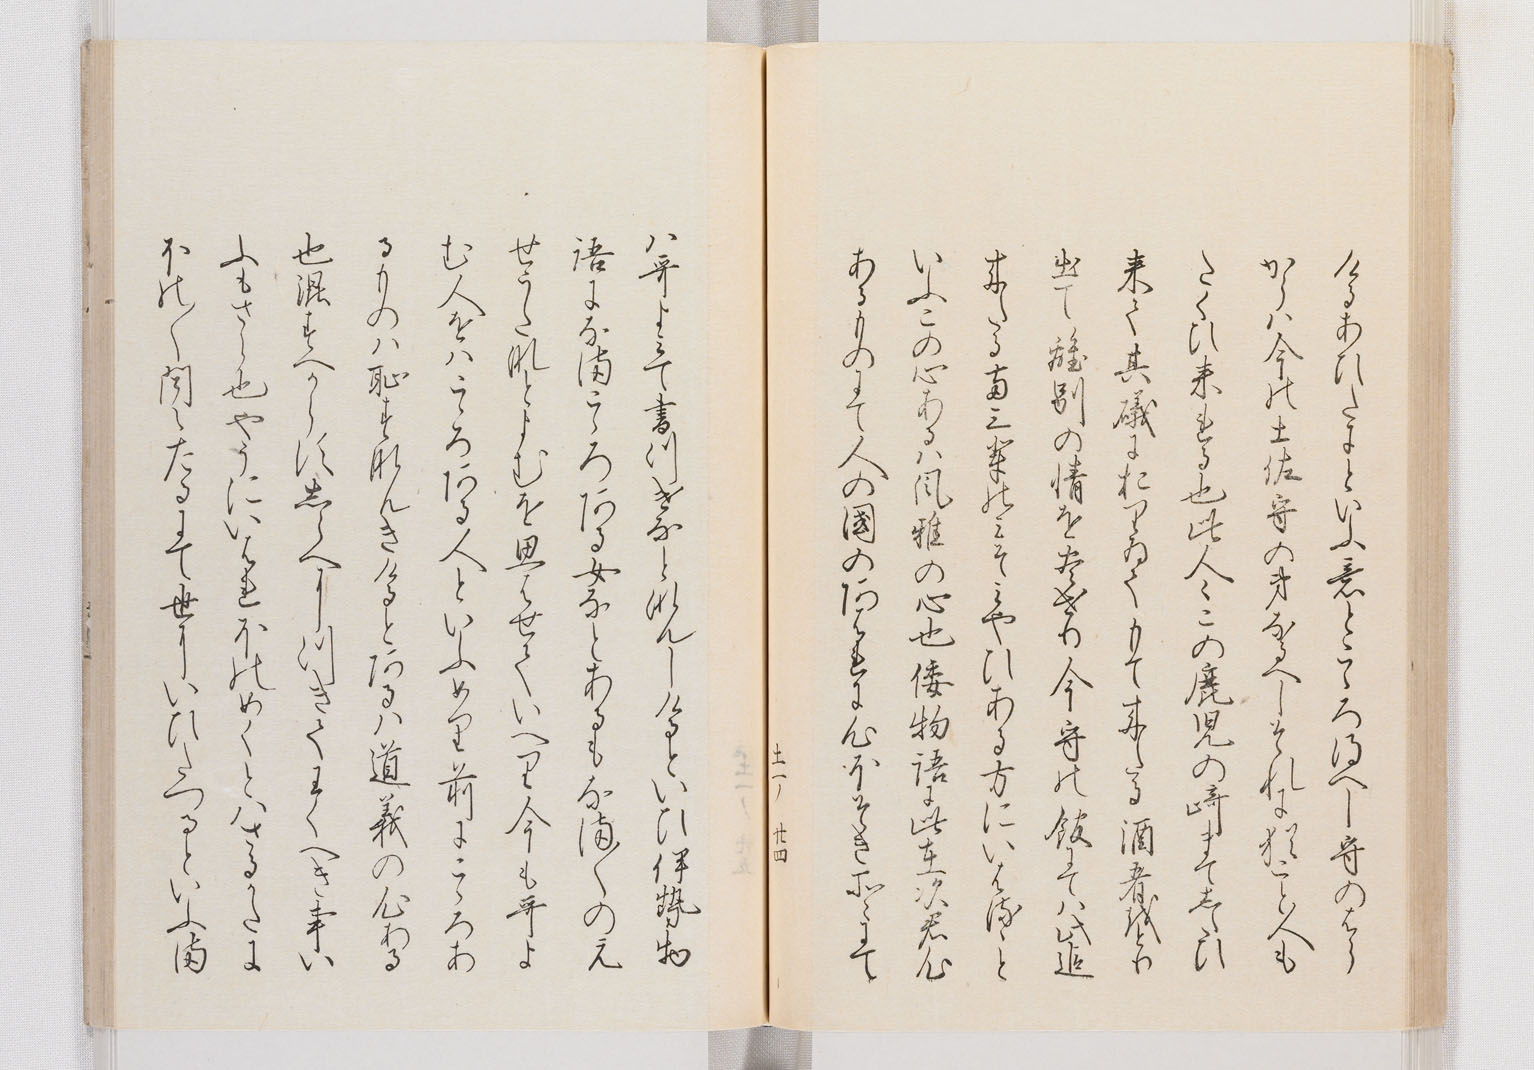 くるあひたにといふ意とこゝろ得へし守のはら
からハ今の土佐守の弟なるへしそれに猶こと人も
したくひ来れる也此人々この鹿児の崎まてしたひ
来て其磯におりゐてもて来たる酒肴をとり
出て離別の情を尽せり今守の館にてハ此追
来たる両三輩のみそみやひある方にいはるゝと
いふこの心あるハ風雅の心也倭物語に此在次君心
あるものにて人の国のあはれに心ほそき所々にて
土一ノ 廿四
ハ哥よみて書つけなとなんしけるといひ伊勢物
語になまこゝろある女なとあるもなま〳〵のえ
せうたなとよむを思はせていへり今も哥よ
む人をハこゝろある人といふめり前にこゝろあ
るものハ恥すなんきけるとあるハ道義の心ある
也混すへからすしらへにつきてわくへき事い
ふもさら也やうにいはれほのめくとハさるかたに
ほの〳〵聞えたるにて世にいひたつるといふま